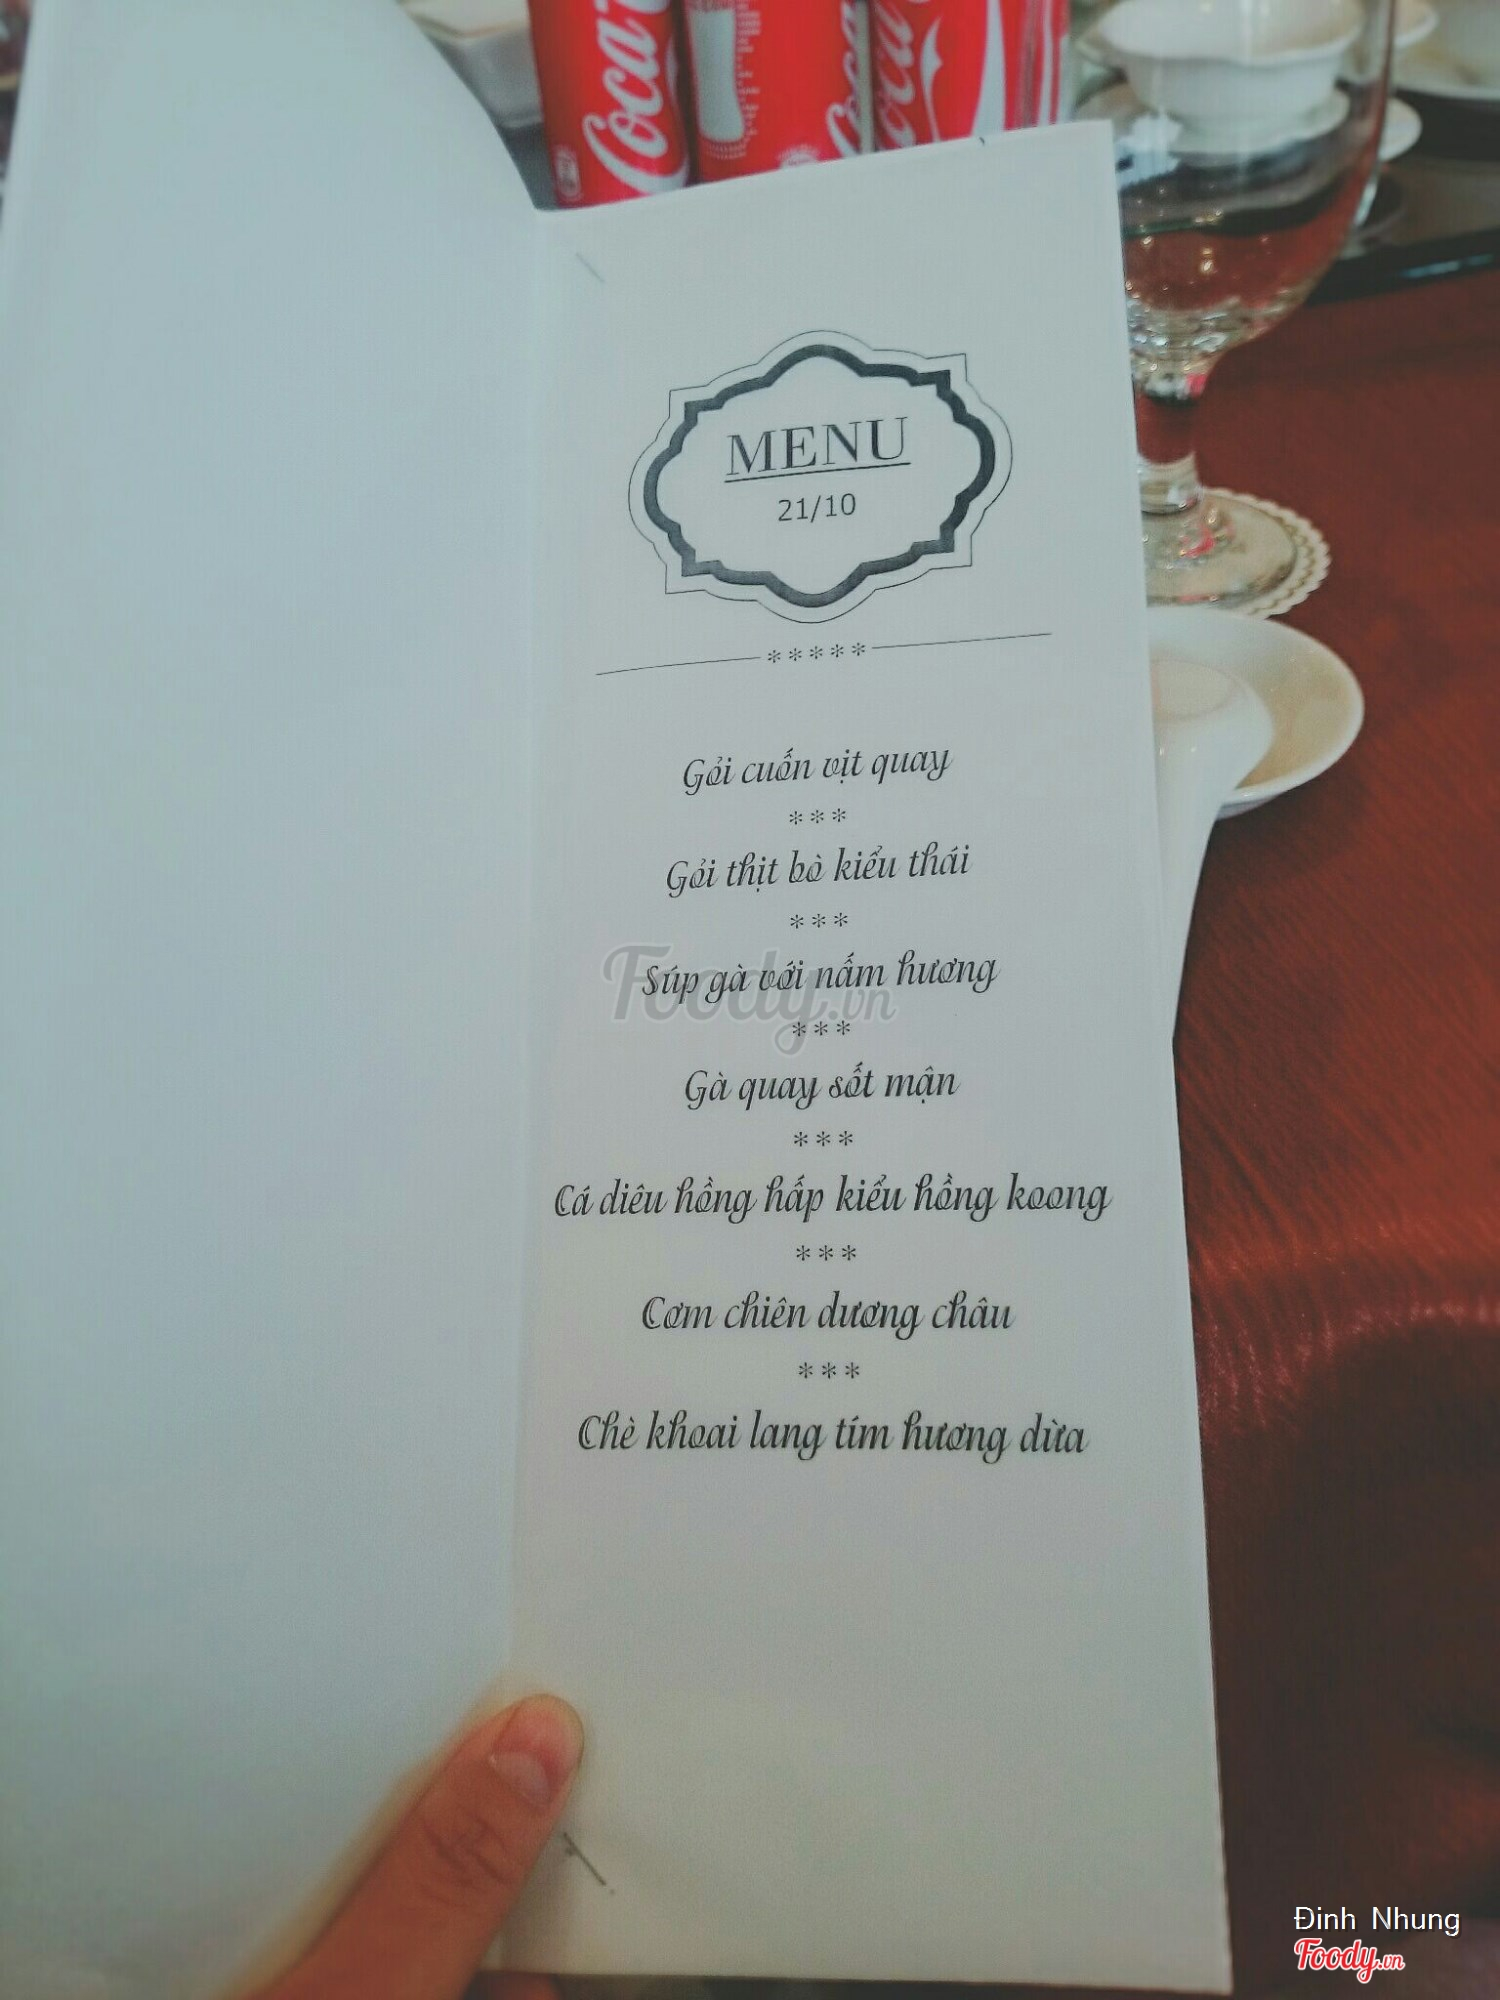 Coca
Coca
Coca
MENU
21/10
*****
Gỏi cuốn vịt quay
***
Gỏi thịt bò kiểu thái
***
Súp gà với nấm hương
***
Gà quay sốt mận
***
Cá diêu hồng hấp kiểu hồng koong
***
Cơm chiên dương châu
***
Chè khoai lang tím hương dừa
Foody.vn
Đinh Nhung
Foody.vn